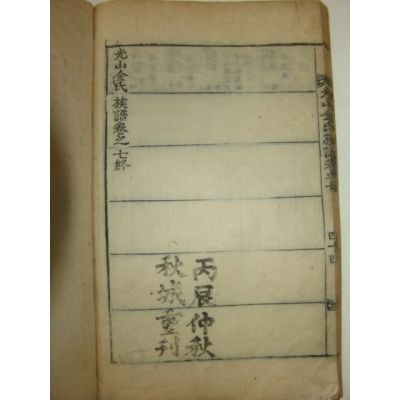 光山金氏族譜卷之七
四十四
丙辰仲秋
秋城重刊
光山金氏 族譜卷之七終